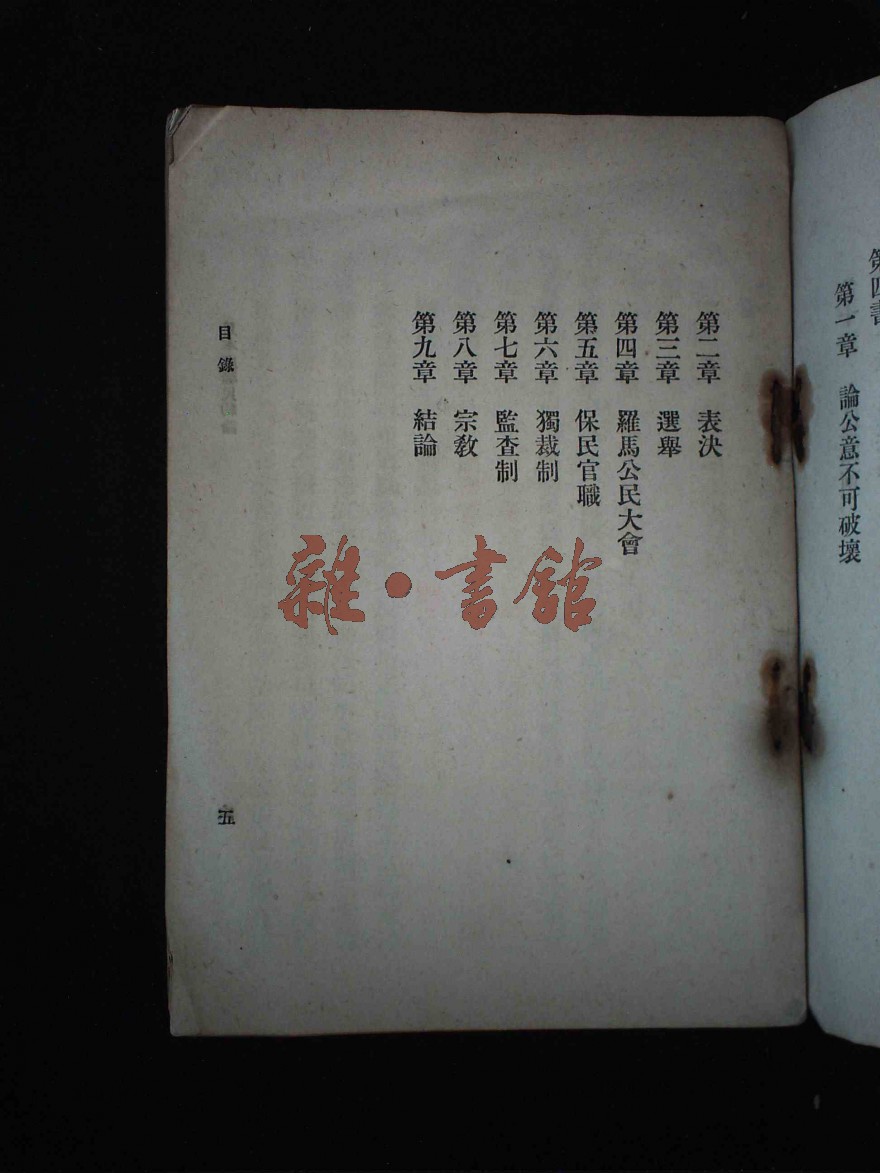 第四書
第一章　論公意不可破壞
第二章　表決
第三章　選舉
第四章　羅馬公民大會
第五章　保民官職
第六章　獨裁制
第七章　監查制
第八章　宗教
第九章　結論
目錄
五
雜·書館